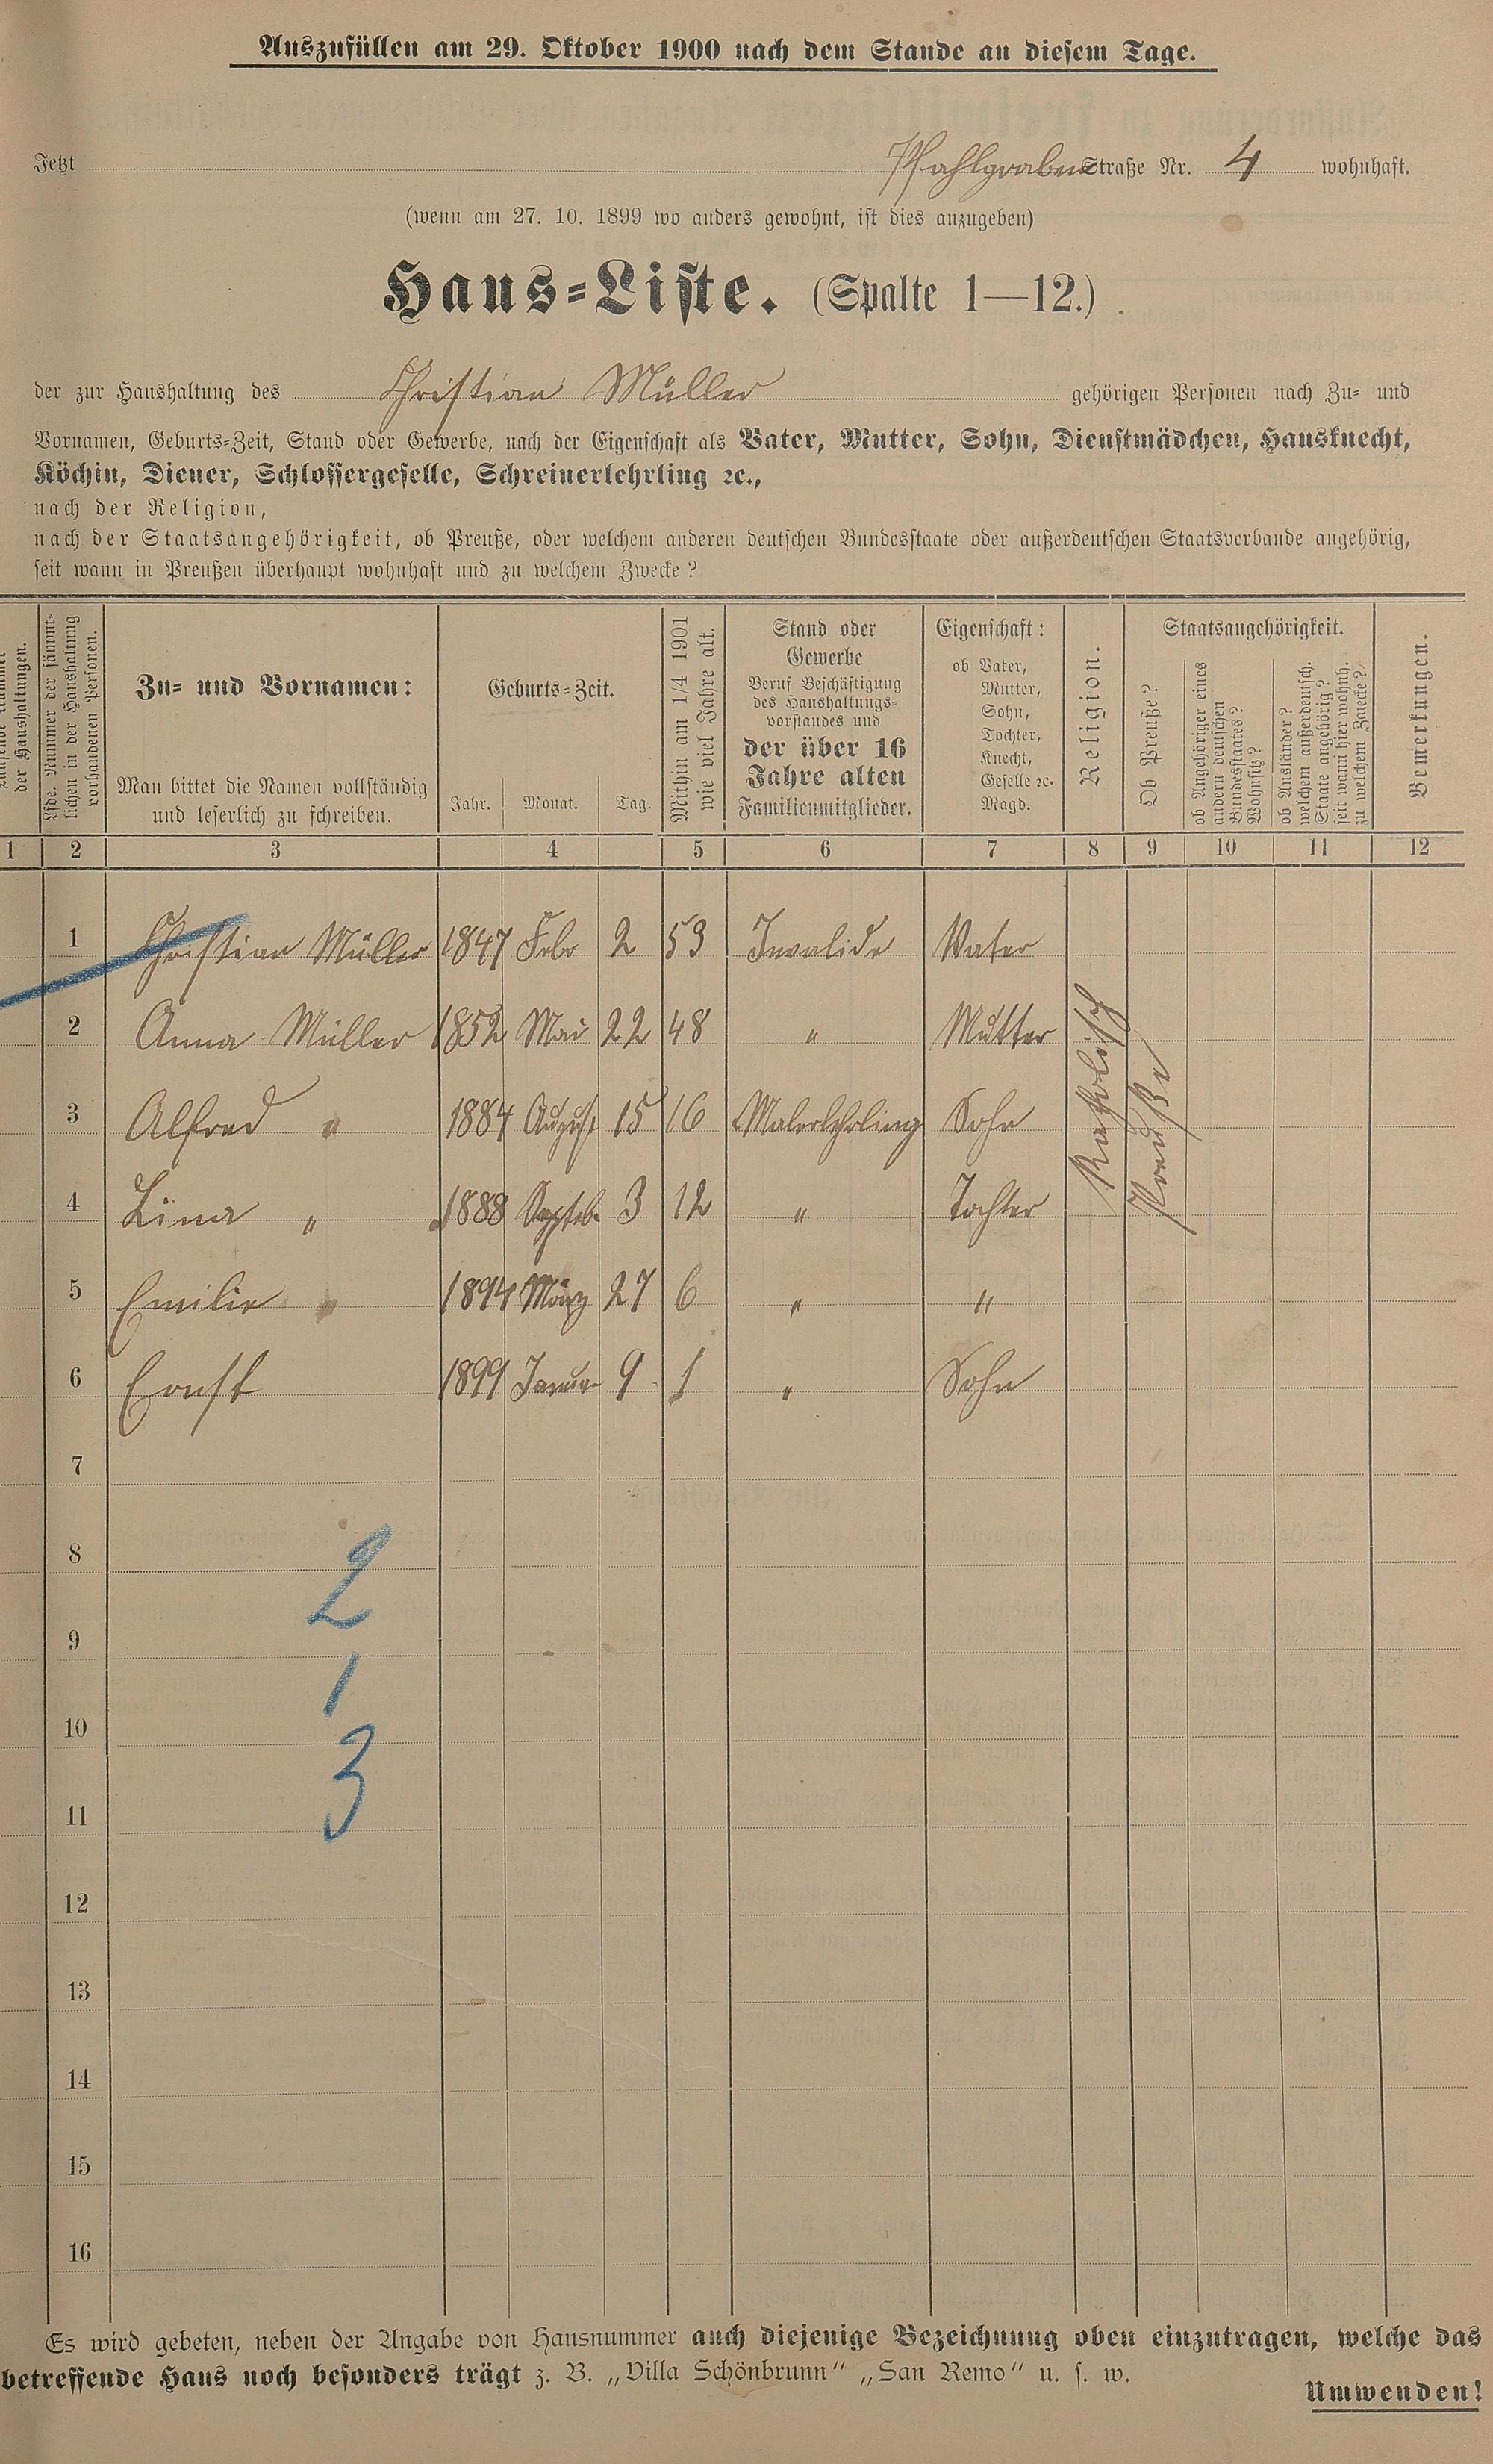 Auszufüllen am 29. Oktober 1900 nach dem Stande an diesem Tage.
Jetzt Pfahlgraben Straße Nr. 4 wohnhaft.
(wenn am 27. 10. 1899 wo anders gewohnt, ist dies anzugeben)
Haus=Liste. (Spalte 1—12.)
der zur Haushaltung des Christian Müller gehörigen Personen nach Zu= und
Vornamen, Geburts=Zeit, Stand oder Gewerbe, nach der Eigenschaft als Vater, Mutter, Sohn, Dienstmädchen, Hausknecht,
Köchin, Diener, Schlossergeselle, Schreinerlehrling ꝛc.,
nach der Religion,
nach der Staatsangehörigkeit, ob Preuße, oder welchem anderen deutschen Bundesstaate oder außerdeutschen Staatsverbande angehörig,
seit wann in Preußen überhaupt wohnhaft und zu welchem Zwecke?
Laufende Nummer
der Haushaltungen.
Lfde. Nummer der sämmt=
lichen in der Haushaltung
vorhandenen Personen.
Zu= und Vornamen:
Man bittet die Namen vollständig
und leserlich zu schreiben.
Geburts=Zeit.
Jahr. Monat. Tag.
Mithin am 1/4 1901
wie viel Jahre alt.
Stand oder
Gewerbe
Beruf Beschäftigung
des Haushaltungs=
vorstandes und
der über 16
Jahre alten
Familienmitglieder.
Eigenschaft:
ob Vater,
Mutter,
Sohn,
Tochter,
Knecht,
Geselle ꝛc.
Magd.
Religion.
Staatsangehörigkeit.
Ob Preuße?
ob Angehöriger eines
andern deutschen
Bundesstaates?
Wohnsitz?
ob Ausländer?
welchem außerdeutsch.
Staate angehörig?
seit wann hier wohnh.
zu welchem Zwecke?
Bemerkungen.
1 2 3 4 5 6 7 8 9 10 11 12
1 Christian Müller 1847 Febr 2 53 Invalide Vater
2 Anna Müller 1852 Mai 22 48 " Mutter
3 Alfred " 1884 August 15 16 Malerlehrling Sohn
4 Lina " 1888 Septeb. 3 12 " Tochter
5 Emilie " 1894 März 27 6 " "
6 Ernst 1899 Januar 9 1 " Sohn
Katholisch
Preuße
7
8
2
9
1
10
3
11
12
13
14
15
16
Es wird gebeten, neben der Angabe von Hausnummer auch diejenige Bezeichnung oben einzutragen, welche das
betreffende Haus noch besonders trägt z. B. „Villa Schönbrunn" „San Remo" u. s. w.
Umwenden!